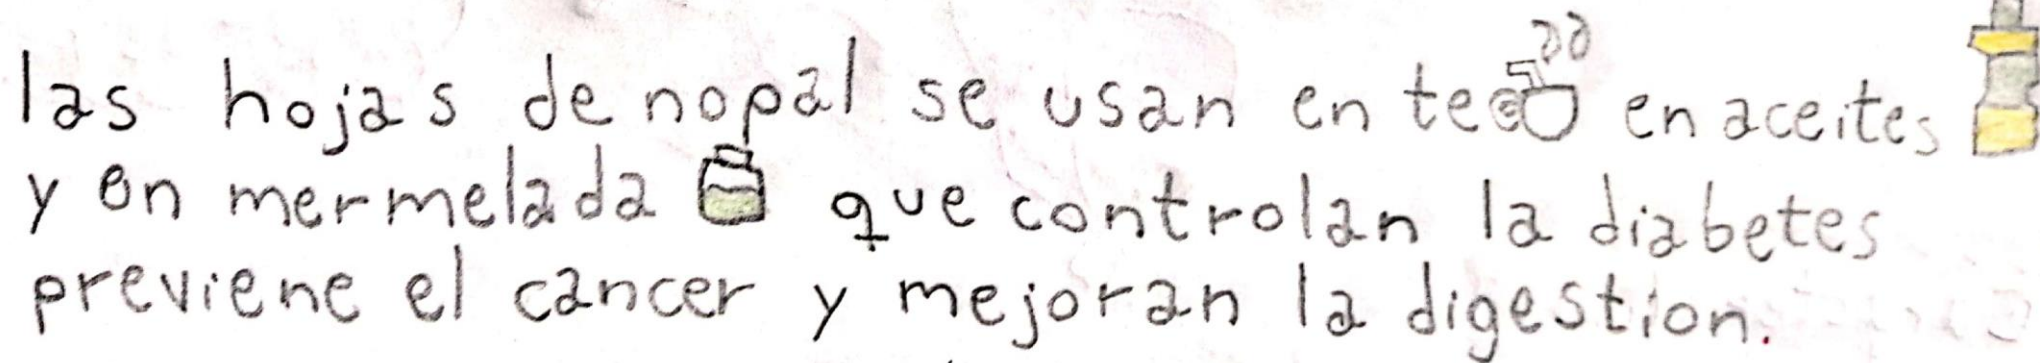 las hojas de nopal se usan en te en aceites
y en mermelada que controlan la diabetes
previene el cancer y mejoran la digestion.